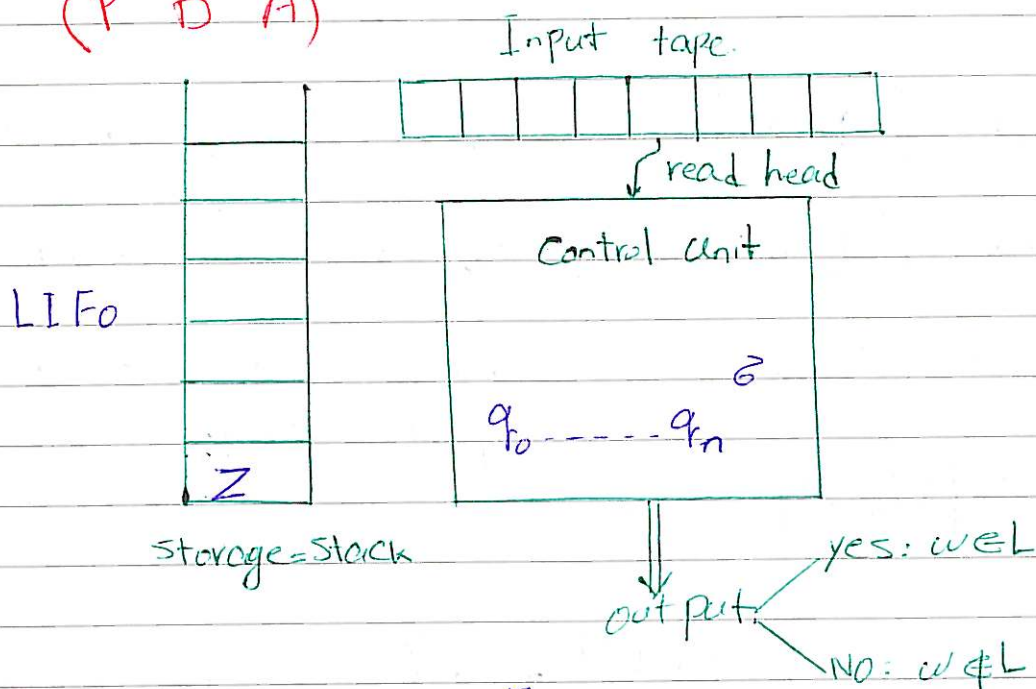 (P D A)
Input tape.
read head
Control Unit
LIFo
δ
q₀ ----- qₙ
Z
storage=stack
yes: w∈L
output:
NO: w∉L